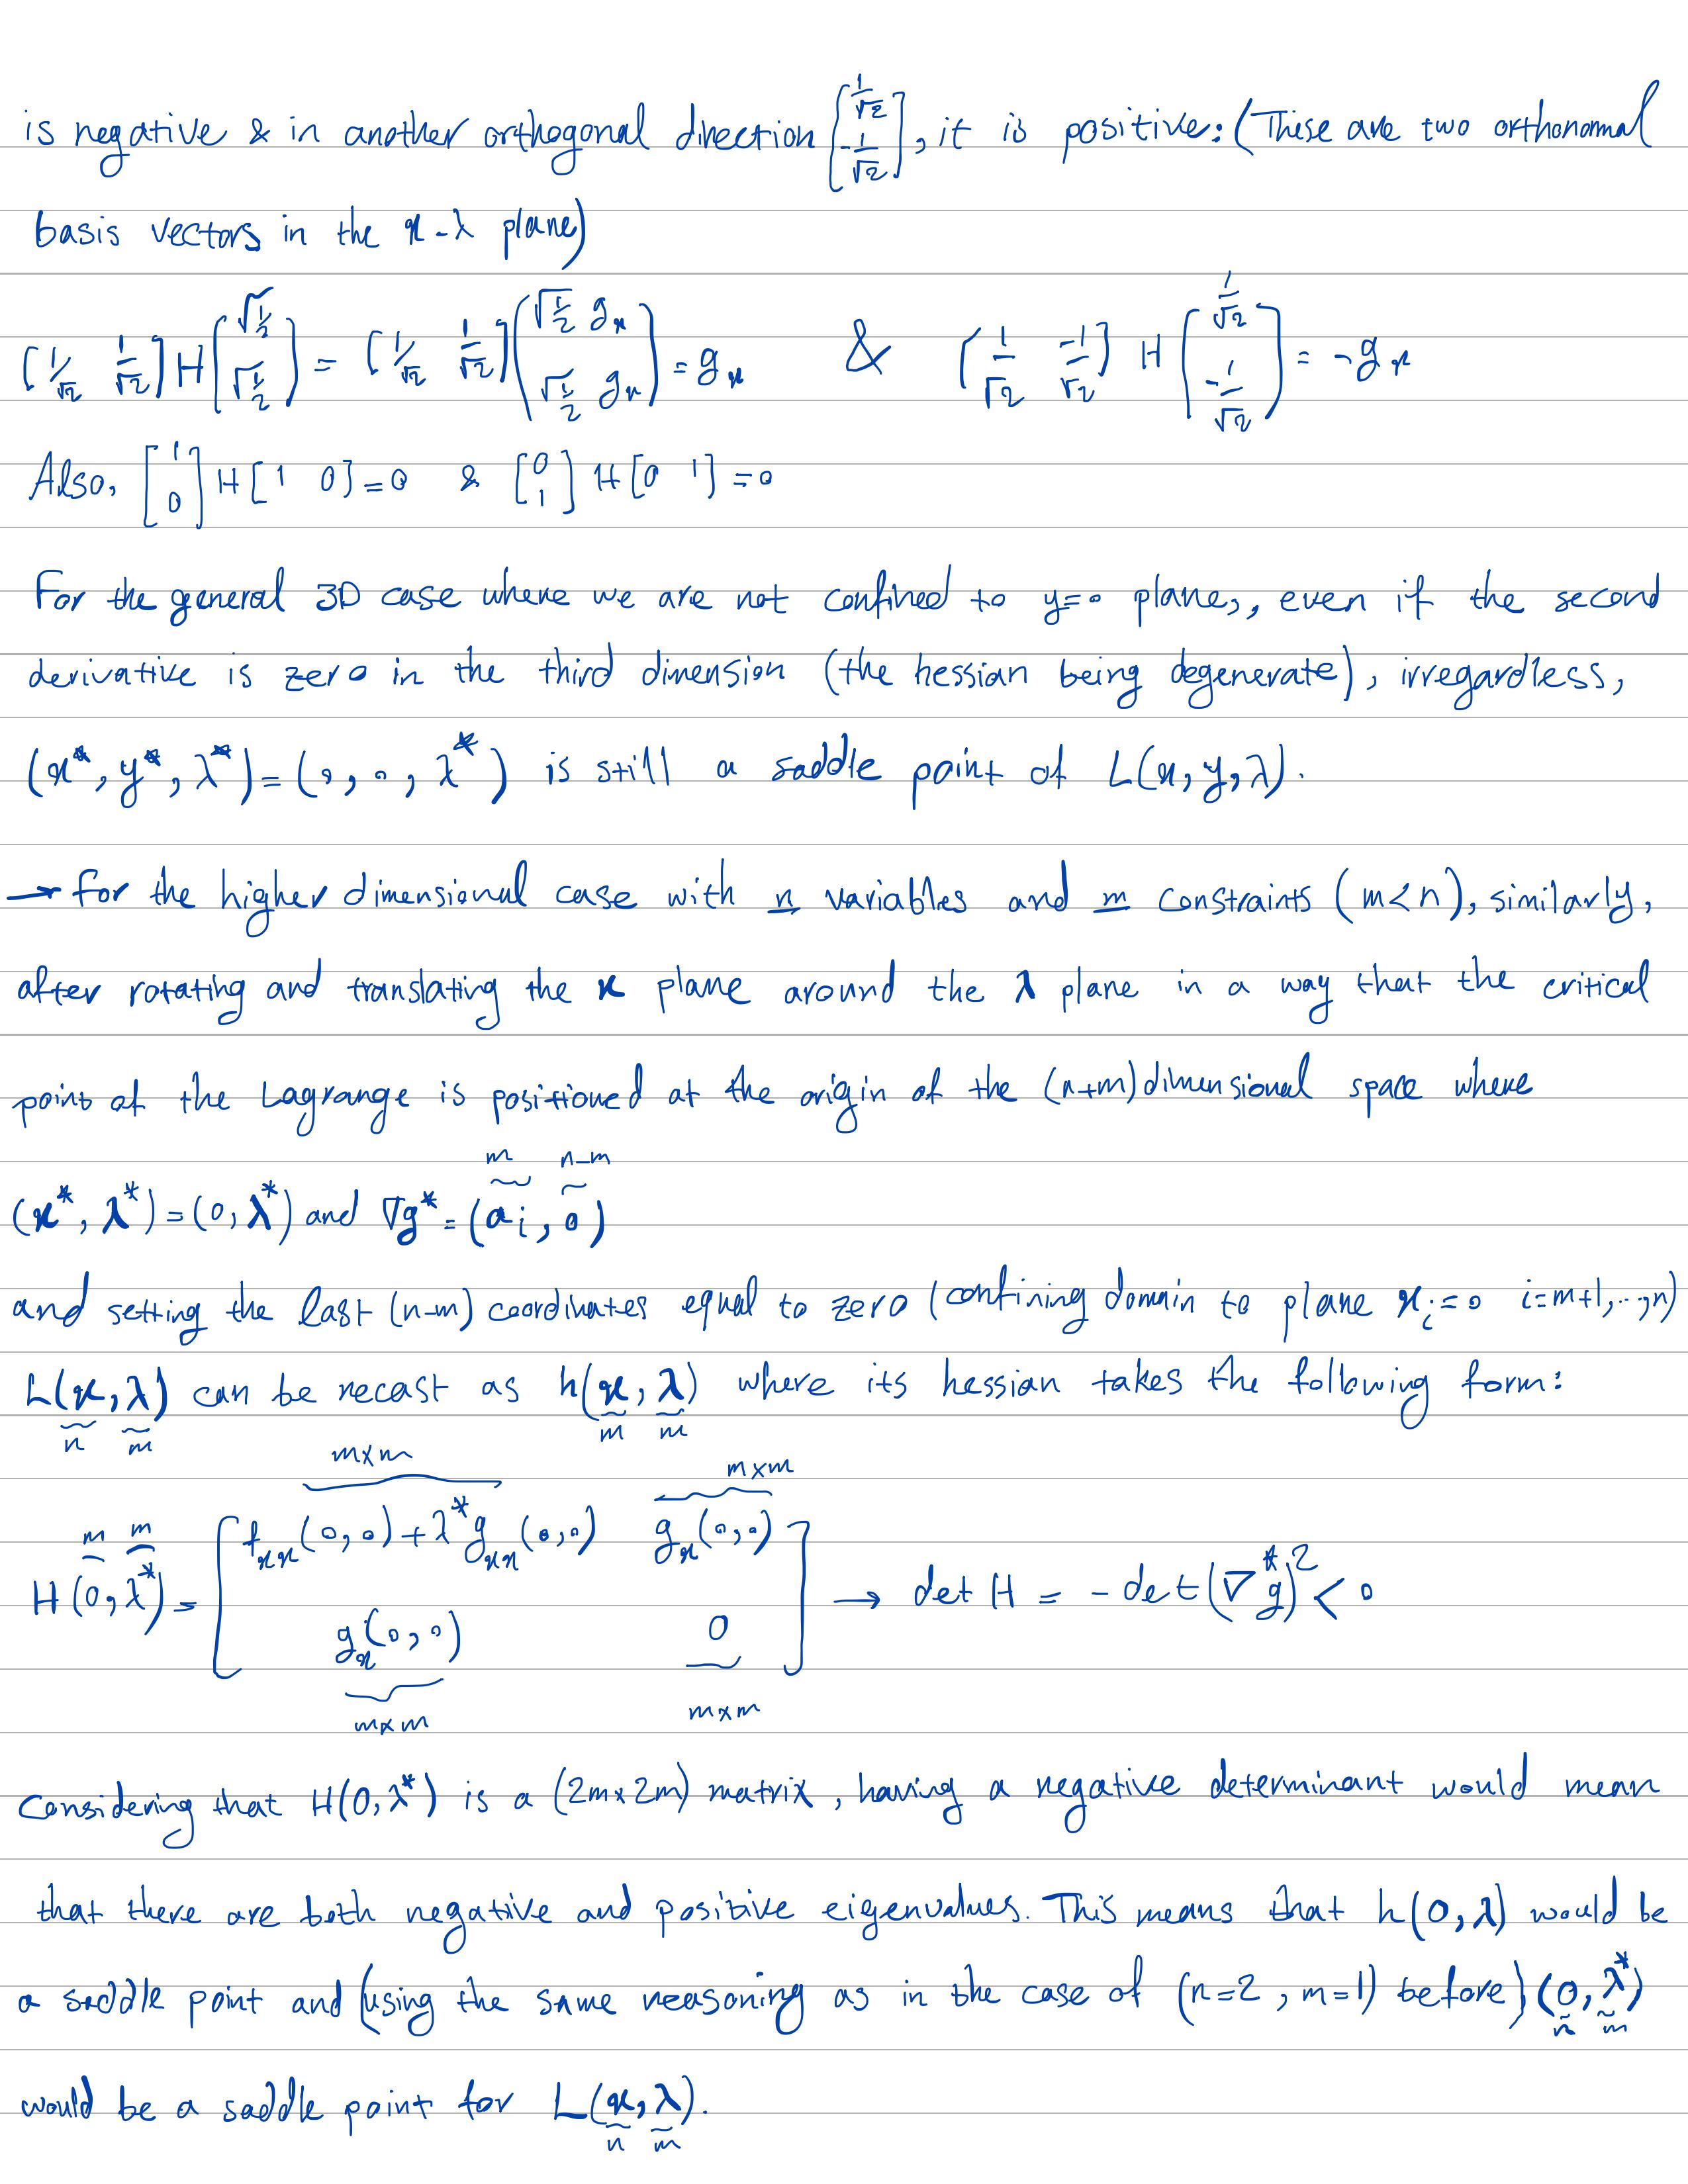 is negative & in another orthogonal direction [1/√2, -1/√2], it is positive: (These are two orthonormal
basis vectors in the x-λ plane)
[1/√2 1/√2] H [√1/2, √1/2] = [1/√2 1/√2] [√1/2 gx, √1/2 gx] = gx & [1/√2 -1/√2] H [1/√2, -1/√2] = -gx
Also, [1, 0] H [1 0] = 0 & [0, 1] H [0 1] = 0
For the general 3D case where we are not confined to y=0 plane,, even if the second
derivative is zero in the third dimension (the hessian being degenerate), irregardless,
(x*, y*, λ*) = (0, 0, λ*) is still a saddle point of L(x, y, λ).
→ for the higher dimensional case with n variables and m constraints (m<n), similarly,
after rotating and translating the x plane around the λ plane in a way that the critical
point of the Lagrange is positioned at the origin of the (n+m) dimensional space where
m n-m
(x*, λ*) = (0, λ*) and ∇g* = (ai, 0)
and setting the last (n-m) coordinates equal to zero (confining domain to plane xi=0 i=m+1,..,n)
L(x, λ) can be recast as h(x, λ) where its hessian takes the following form:
n m m m
m×m m×m
m m
H(0, λ*) = [fxx(0,0) + λ*gxx(0,0) gx(0,0)
gx(0,0) 0] → det H = - det(∇g*)² < 0
m×m m×m
Considering that H(0, λ*) is a (2m×2m) matrix, having a negative determinant would mean
that there are both negative and positive eigenvalues. This means that h(0, λ) would be
a saddle point and (using the same reasoning as in the case of (n=2, m=1) before) (0, λ*)
n m
would be a saddle point for L(x, λ).
n m